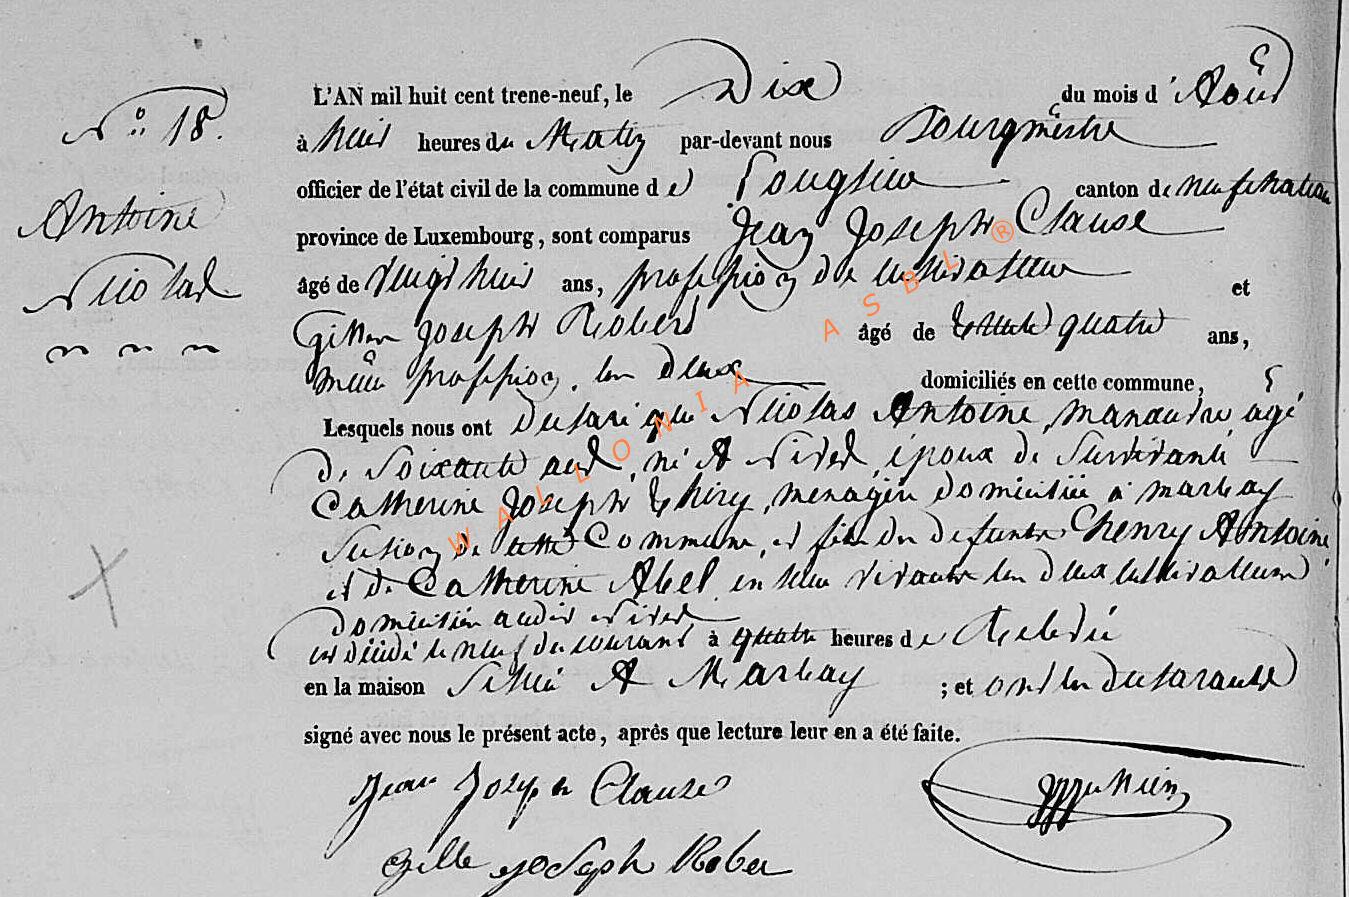 N° 18.
Antoine
Nicolas
L'AN mil huit cent trene-neuf, le Dix du mois d'Août
à huit heures du Matin par-devant nous Bourgmestre
officier de l'état civil de la commune de canton de neufchateau
province de Luxembourg, sont comparus Jean Joseph Clause
âgé de vingt huit ans, profession de cultivateur et
Gille Joseph Robert âgé de trente quatre ans,
même profession, les deux domiciliés en cette commune,
Lesquels nous ont Declaré que Nicolas Antoine, manœuvre âgé
de Soixante ans, né A époux de Survivante
Catherine Joseph thiry, menagère domiciliée à marbay
Section de cette Commune, et fils des defunts henry Antoine
et de Catherine Abel, en leur vivant les deux cultivateurs
domiciliés audit
est décédé le neuf du courant à quatre heures de Relevée
en la maison Située A Marbay ; et ont les declarants
signé avec nous le présent acte, après que lecture leur en a été faite.
Jean Joseph Clause
Gille joseph Rober
WALLONIA ASBL ®